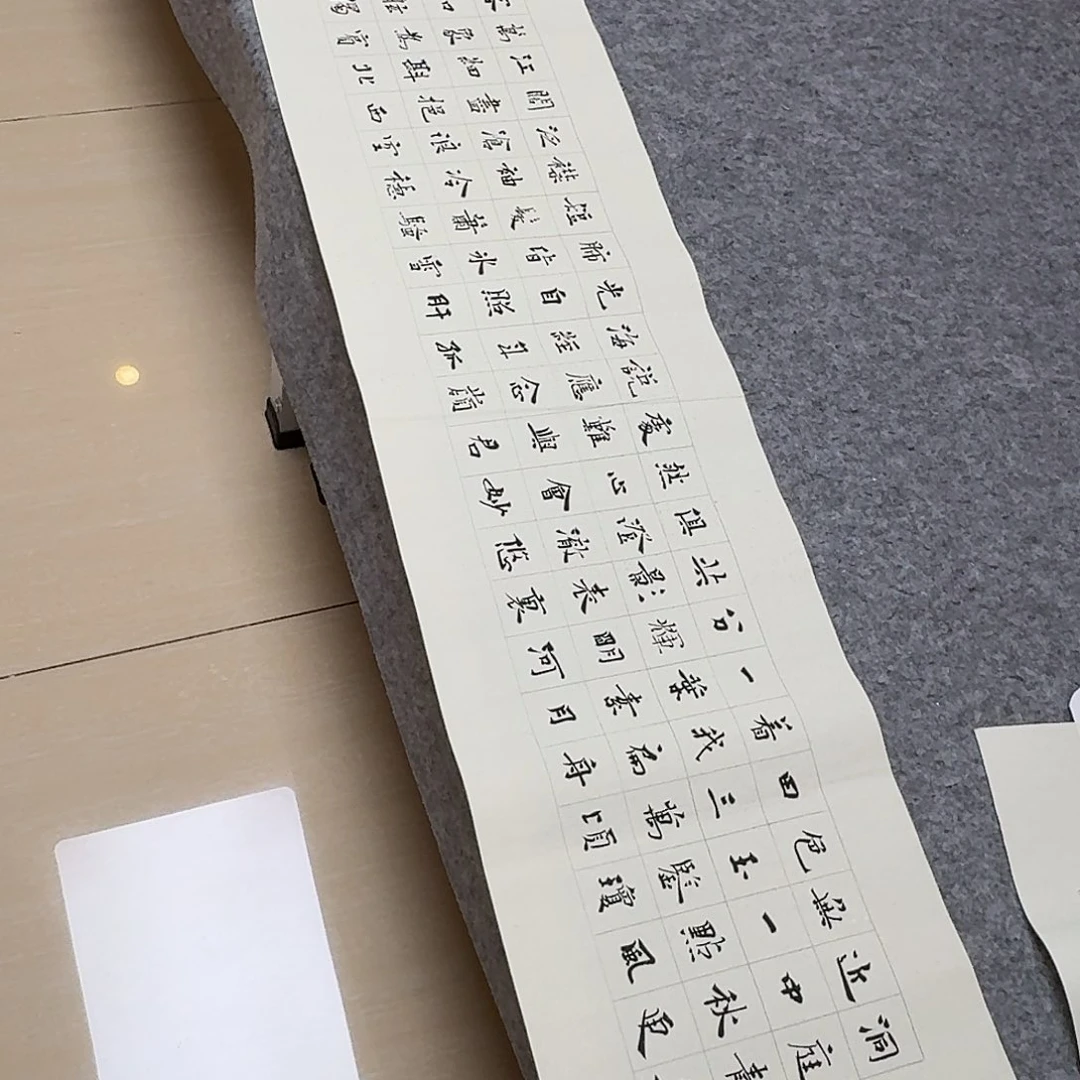 洞庭青
近中秋更
無一點風
色玉鑒瓊
田三萬頃
着我扁舟
一葉素月
分輝明河
共影表裏
俱澄澈悠
然心會妙
處難與君
説應念嶺
海經年孤
光自照肝
肺皆氷雪
短髮蕭騷
襟袖冷穩
泛滄浪空
闊盡挹西
江細斟北
萬象為賓
客扣舷